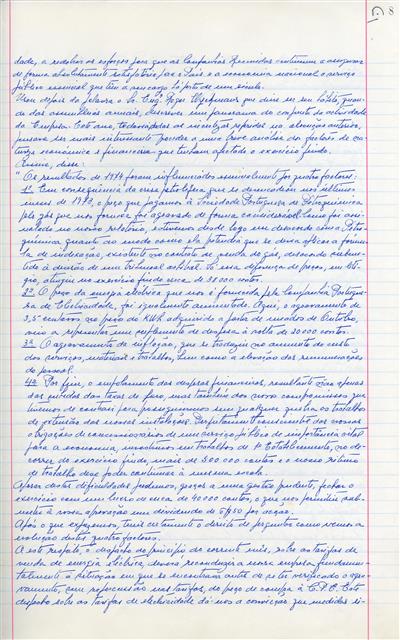 8
dade, a redobrar os esforços para que as Companhias Reunidas continuem a assegurar
de forma absolutamente satisfatória para o País e a economia nacional o serviço
público essencial que têm a seu cargo há perto de um século.
Usou depois da palavra o Sr. Engº Roger
da Empresa.
Assim, disse:
"Os resultados de 1974 foram influenciados essencialmente por quatro factores:
1º Em consequência da crise petrolífera que se desencadeou nos últimos
meses de 1973, o preço que pagamos à Sociedade Portuguesa de Petroquímica
pelo gás que nos fornece foi agravado de forma considerável. Como foi assi-
nalado no nosso relatório, estivemos desde logo em desacordo com a Petro-
química quanto ao modo como ela pretendia que se devia aplicar a fórmu-
la de indexação, existente no contrato de venda do gás, desacordo subme-
tido à decisão de um tribunal arbitral. Só essa diferença de preço, em lití-
gio, atingiu no exercício findo cerca de 38.000 contos.
2º O preço da energia eléctrica, que nos é fornecida pela Companhia Portugue-
sa de Electricidade, foi igualmente aumentado. Aqui, o agravamento de
3,5 centavos no preço do KWh adquirido a partir de meados de Outubro,
veio a representar um suplemento de despesa à volta de 20.000 contos.
3º O agravamento da inflação, que se traduziu no aumento do custo
dos serviços, materiais e trabalhos, bem como a elevação das remunerações
do pessoal.
4º Por fim, o ampliamento das despesas financeiras, resultante não apenas
das subidas das taxas de juro, mas também dos novos compromissos que
tivemos de contrair para prosseguirmos sem qualquer quebra os trabalhos
de extensão das nossas instalações. Perfeitamente conscientes das nossas
obrigações de concessionários de um serviço público de importância vital
para a economia, investimos em trabalhos de 1º Estabelecimento, no de-
correr do exercício findo, mais de 500.000 contos e o nosso ritmo
de trabalho deve poder continuar à mesma escala.
Apesar destas dificuldades pudemos, graças a uma gestão prudente, fechar o
exercício com um lucro de cerca de 40.000 contos, o que nos permitiu sub-
meter à vossa aprovação um dividendo de 5$50 por acção.
Após o que expusemos, tereis certamente o direito de perguntar como vemos a
evolução destes quatro factores.
A este respeito, o despacho do princípio do corrente mês, sobre as tarifas de
venda de energia eléctrica, deverá reconduzir a nossa empresa fundamen-
talmente à situação em que se encontrava antes de se ter verificado o agra-
vamento, sem repercussão nas tarifas, do preço de compra à C.P.E. Este
despacho sobre as tarifas de electricidade dá-nos a convicção que medidas si-